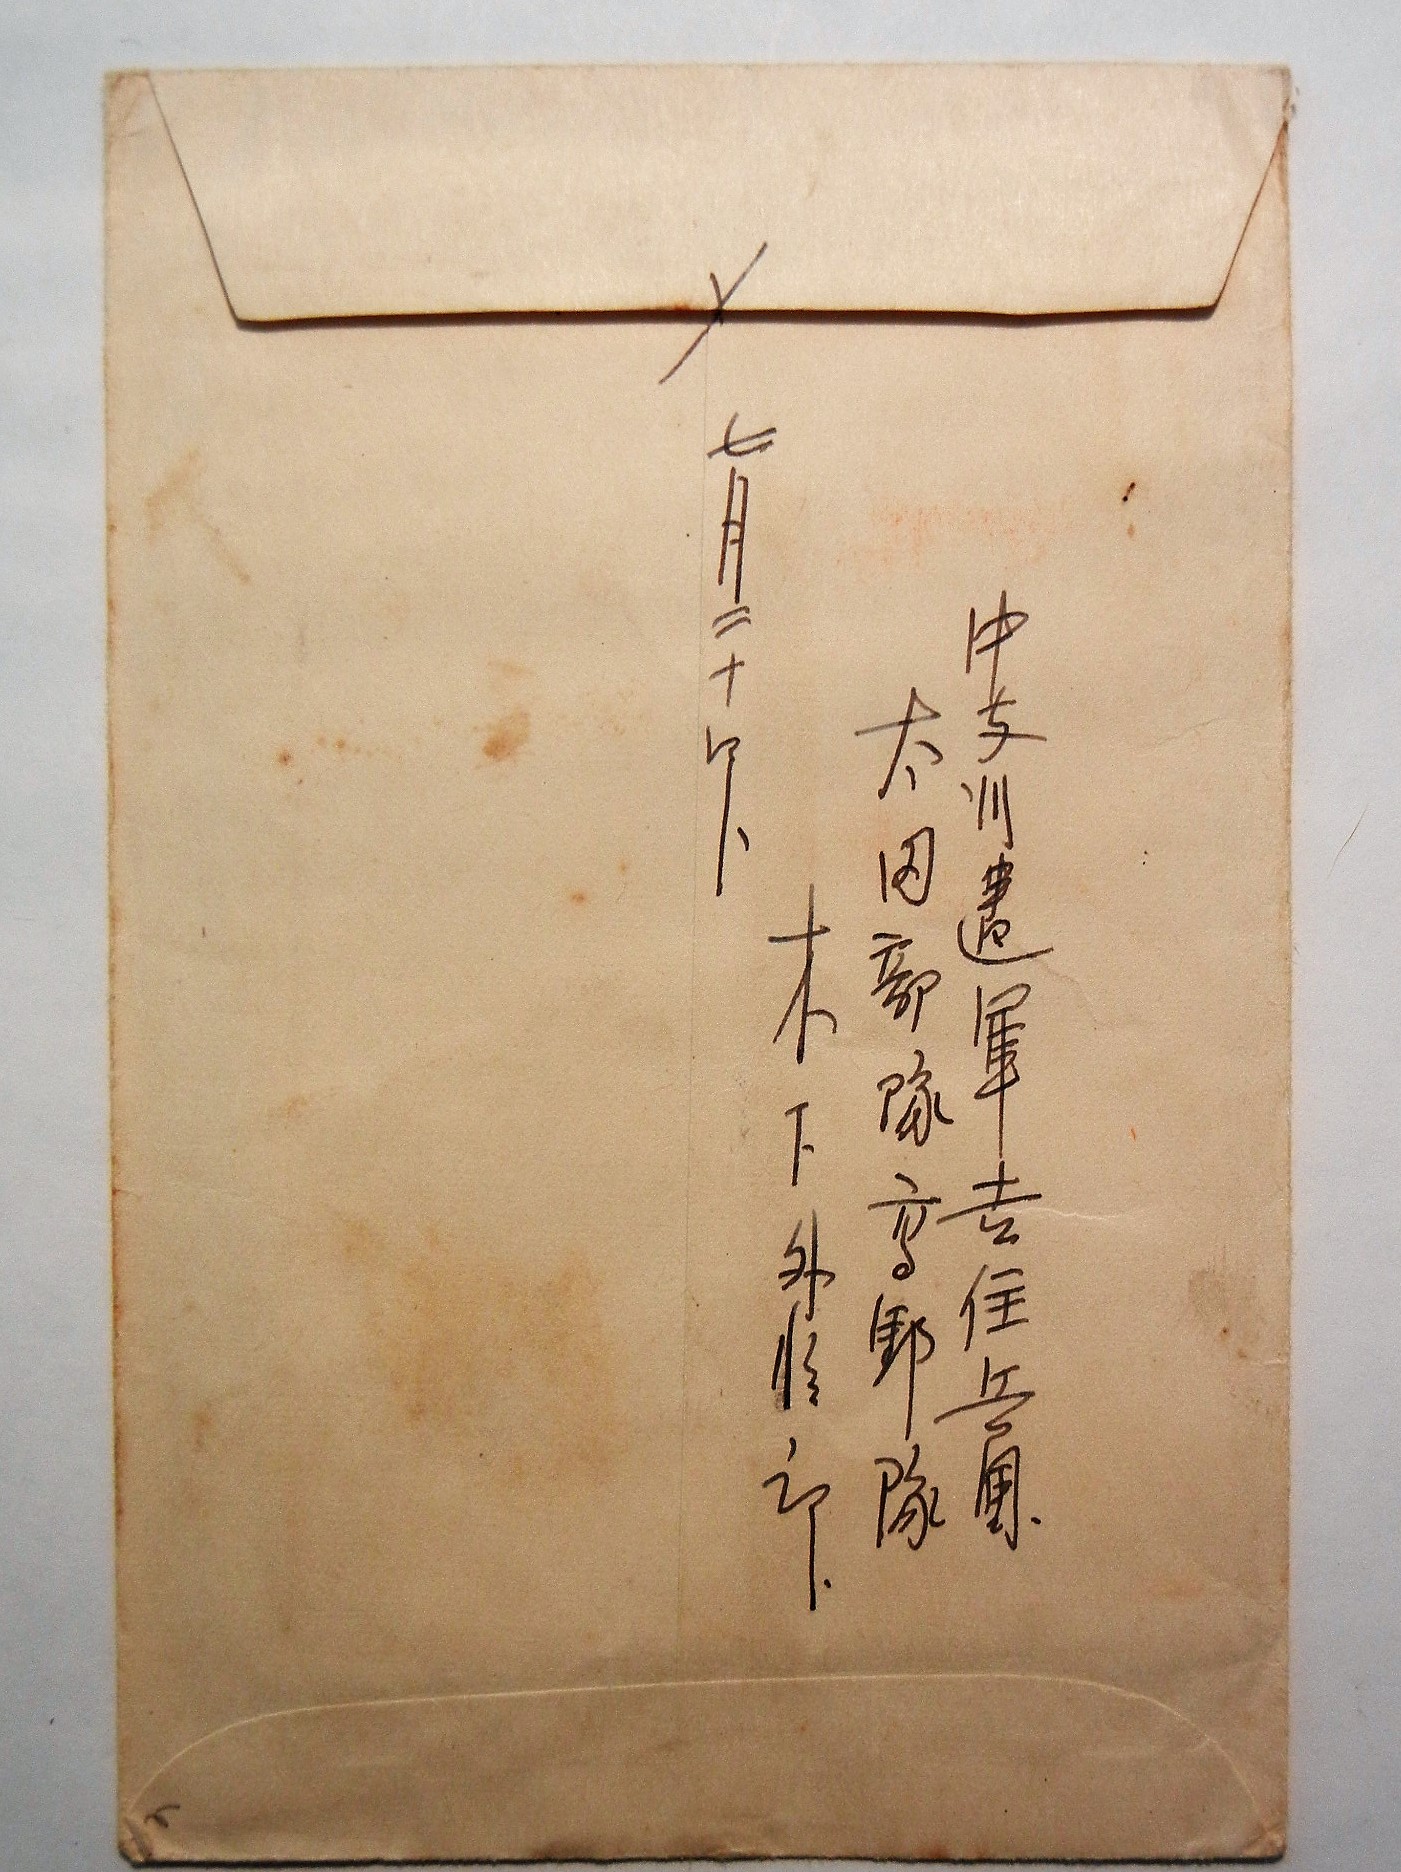 中支派遣軍吉住兵團
太田部隊高野隊
木下外郎
〆
七月二十